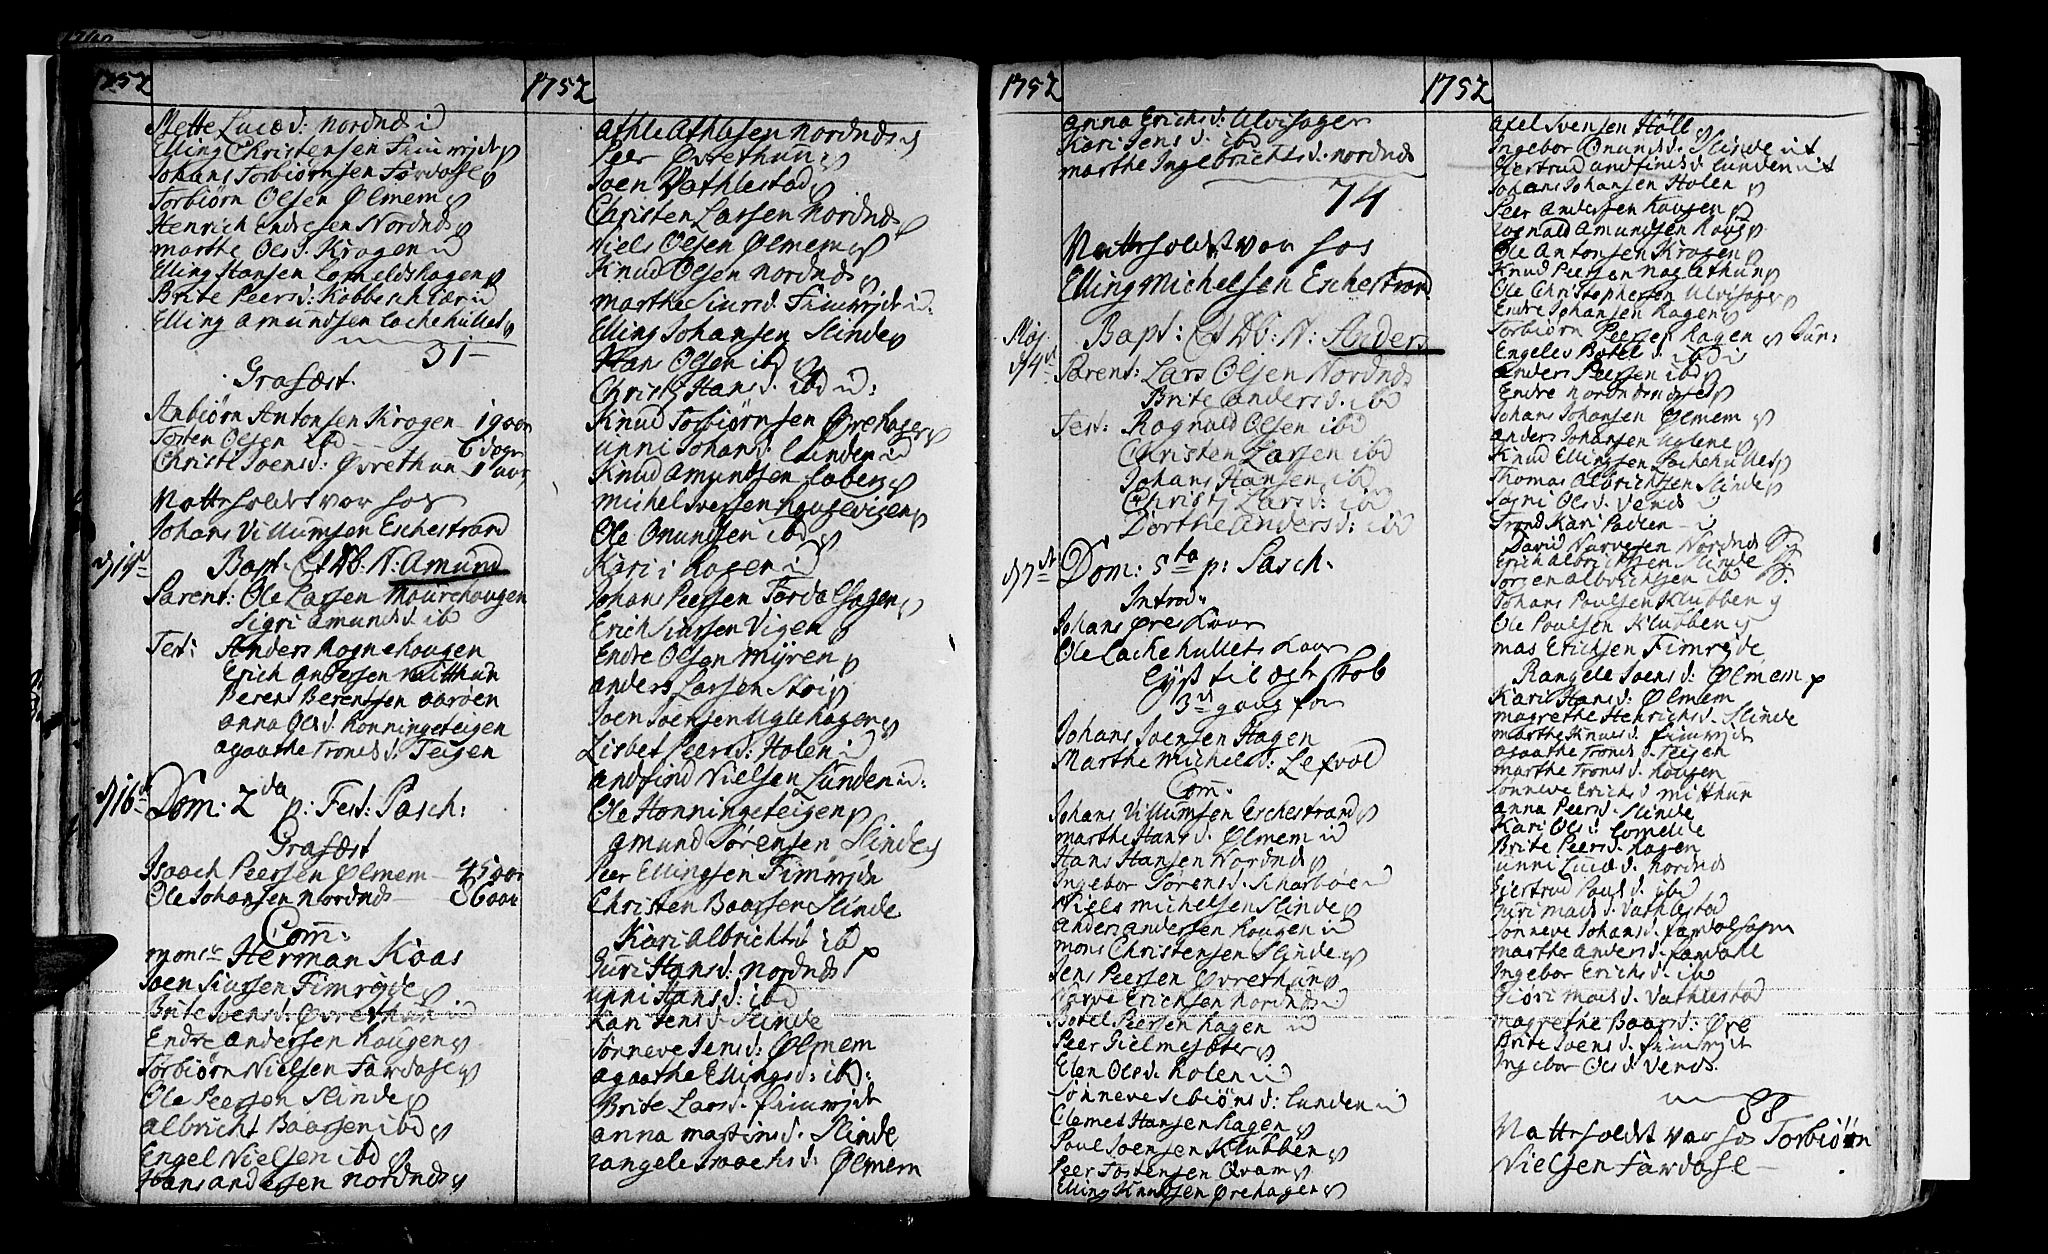 1752
Mette Lucæd: Nordnæs
Elling Christensen Fimrejte
Johans Torbiørnsen Fardahl
Torbiørn Olsen Ølmem
Henrich Endresen Nordnæs
Marthe Olsd. Krogen
Elling Hansen Corneldshagen
Brite Peersd:
Elling Amundsen Lachehullet
31
Grafæst
Anbiørn Antonsen Krogen 19 aar
Torsten Olsen ibd
Christi Joensd: Øvrethun 1 aar
Nattrsoldt var hos
Johans Villumsen Eschestrand
Bapt: N: Amund
Parent: Ole Larsen Maurehougen
Sigri Amundsd. ib
Test: Anders Rognehougen
Erich Andersen Mitthun
Berent Berentsen Aarøen
Anna Olsd. Honningeteigen
Agaathe Tronsd. Teigen
d. 16de Dom: 2da p: Fest: Pasch:
Grafæst
Isaach Peersen Ølmem 45 aar
Ole Johansen Nordnæs 86 aar
Com:
Monsr Herman Koas
Joen Siursen Fimrejte
Brite Joensd: Øvrethun
Endre Andersen Hougen
Torbiørn Nielsen Fardahl
Ole Peersen Slinde
Albricht Baarsen ibd
Engel Nielsen ibd
Johans Andersen Nordnæs
1752
Athle Athlesen Nordnæs
Peer Øvrethun
Joen Vathlestad
Christen Larsen Nordnæs
Niels Olsen Ølmem
Knud Olsen Nordnæs
Marthe Siursd. Fimrejte
Elling Johansen Slinde
Hans Olsen ibd
Christi Hansd. ibd
Knud Torbiørnsen Ørehagen
Unni Johansd: Lunden
Knud Amundsen Loberg
Michel Iversen
Ole Omundsen ibd
Kari i Hagen
Johans Peersen Fardalshagen
Erich Siursen Vigen
Endre Olsen Myren
Anders Larsen Stoi
Joen Joensen Uglehagen
Lisbet Peersd: Holen
Andfind Nielsen Lunden
Ole Honningeteigen
Amund Sørensen Slinde
Peer Ellingsen Fimrejte
Christen Baarsen Slinde
Kari Albrichtsd ib
Guri Hansd: Nordnæs
Unni Hansd: ibd
Kari Jensd. Slinde
Sønneve Jensd: Ølmem
Agaathe Ellingsd: ib:
Brite Larsd. Fimrejte
Anna Martinsd. Slinde
Rangele Isaachsd: Ølmem
1752
Anna Erichsd: Ulvisager
Kari Jensd. ibd
Marthe Ingebrichtsd. Nordnæs
74
Nattrsoldt var hos
Elling Michelsen Eschestrand
Maj. Bapt: N: Anders
Parent: Lars Olsen Nordnæs
Brite Andersd. ibd
Test: Rognald Olsen ibd
Christen Larsen ibd
Johans Hansen ibd
Christi Larsd: ibd
Dorthe Andersd: ibd
d. 7de Dom: 5ta p: Pasch.
Introd:
Johans Øres Kaar
Ole Lachehullets Kaar
Lyst til Egteskab
3de gang for
Johans Joensen Hagen
Marthe Michelsd: Lefvol
Com:
Johans Villumsen Eschestrand
Marthe Hansd. Ølmem
Hans Hansen Nordnæs
Ingebor Sørensd. Scharbøe
Niels Michelsen Slinde
Anders Andersen Hougen
Mons Christensen Slinde
Jens Peersen Øvrethun
Narve Erichsen Nordnæs
Botel Peersen Hagen
Peer Gielmejster
Elen Olsd. Holen
Sønneve Sebiønsd: Lunden
Clemet Hansen Hagen
Paul Joensen Klubben
Peer Tostensen Qvam
Elling Knudsen Ørehagen
1752
Axel Svensen Høll
Ingebor Omundsd. Slinde
Giertrud Andfindsd. Lunden
Johans Johansen Holen
Peer Andersen Hougen
Rognald Amundsen Houg
Ole Antonsen Krogen
Knud Peersen Nagløthun
Ole Christophersen Ulvisager
Endre Johansen Hagen
Torbiørn Peersen Hagen Jun:
Engeles Botelsd. ibd
Anders Peersen ibd
Endre Nordnæs
Johans Johansen Ølmem
Anders Johansen Uglene
Knud Ellingsen Lachehullet
Thomas Albrichtsen Slinde
Sigri Olsd. Vends
Trond Kari
David Narvesen Nordnæs
Erich Albrichtsen Slinde
Torsten Albrichtsen ib
Johans Poulsen Klubben
Ole Poulsen Klubben
Mas Erichsen Fimrejte
Rangele Joensd: Ølmem
Kari Hansd: Ølmem
Magrethe Henrichsd. Slinde
Marthe Knudsd. Fimrejte
Agaathe Tronsd. Teigen
Marthe Tronsd. Hougen
Sønneve Erichsd Mitthun
Anna Peersd. Slinde
Kari Olsd:
Brite Peersd. Hagen
Unni Lucæd. Nordnæs
Giertrud Paulsd. ibd
Guri Madsd. Vathlestad
Sønneve Johansd. Fardalsagen
Marthe Andersd. Fardahl
Ingebor Erichsd. ib
Giøri Madsd. Vathlestad
Magrethe Baarsd: Øre
Brite Joensd. Fimrejte
Ingebor Olsd Vends.
88
Nattrsoldt var hos Torbiørn
Nielsen Fardahl